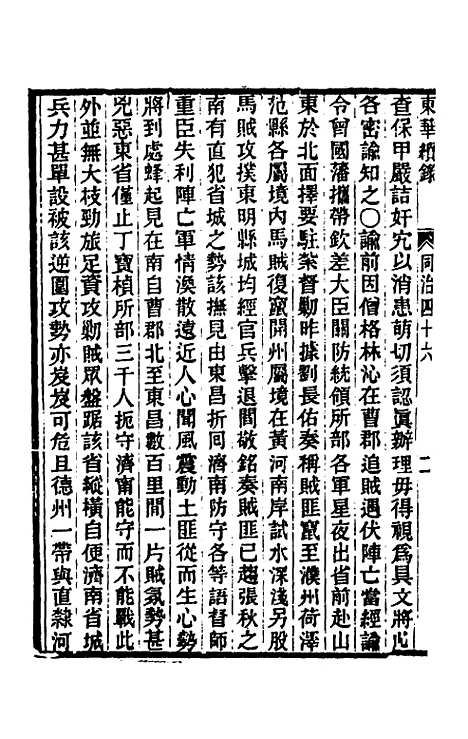 東華續錄　同治四十六　二
查保甲嚴詰奸宄以消患萌切須認眞辦理毋得視爲具文將此
各密諭知之〇諭前因僧格林沁在曹郡追賊遇伏陣亡當經諭
令曾國藩攜帶欽差大臣關防統領所部各軍星夜出省前赴山
東於北面擇要駐紮督勦昨據劉長佑奏稱賊匪竄至濮州荷澤
范縣各屬境內馬賊復竄開州屬境在黃河南岸試水深淺另股
馬賊攻撲東明縣城均經官兵擊退閻敬銘奏賊匪已趨張秋之
南有直犯省城之勢該撫見由東昌折回濟南防守各等語督師
重臣失利陣亡軍情渙散遠近人心聞風震動土匪從而生心勢
將到處蜂起見在南自曹郡北至東昌數百里間一片賊氛勢甚
兇惡東省僅止丁寶楨所部三千人扼守濟甯能守而不能戰此
外並無大枝勁旅足資攻勦賊眾盤踞該省縱橫自便濟南省城
兵力甚單設被該逆圍攻勢亦岌岌可危且德州一帶與直隸河